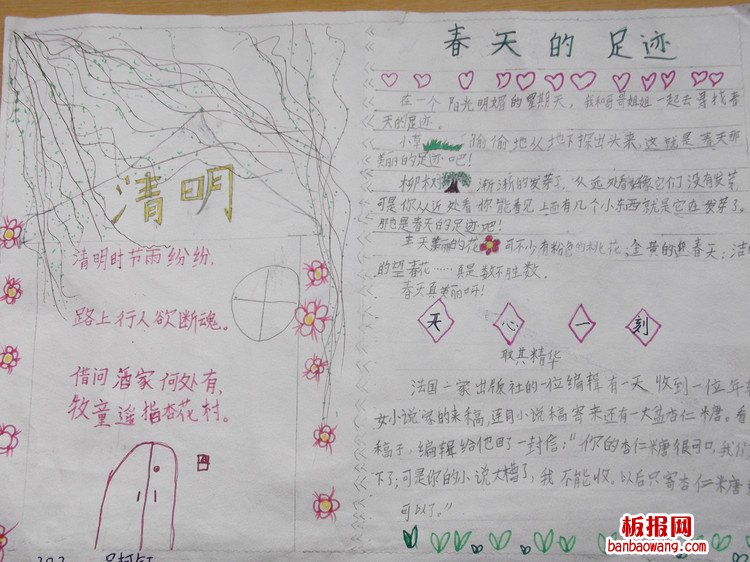 清明
清明时节雨纷纷,
路上行人欲断魂。
借问酒家何处有,
牧童遥指杏花村。
春天的足迹
在一个阳光明媚的星期天,我和哥哥姐姐一起去寻找春
天的足迹。
小草偷偷地从地下探出头来,这就是春天那
美丽的足迹吧!
柳树渐渐的发芽了,从远处看好像它们没有发芽,
可是你从近处看你能看见上面有几个小东西就是它在发芽了。
那也是春天的足迹吧!
春天美丽的花可不少有粉色的桃花,金黄的迎春天;洁
的望春花……真是数不胜数。
春天真美丽呀!
开心一刻
取其精华
法国一家出版社的一位编辑有一天收到一位年
女小说家的来稿,连同小说稿寄来还有一大盒杏仁米唐。看
稿子,编辑给他回了一封信:"你的杏仁米唐很可口,我们
下了;可是你的小说太糟了,我不能收。以后只寄杏仁米唐
可以了。"
板报网
banbaowang.com